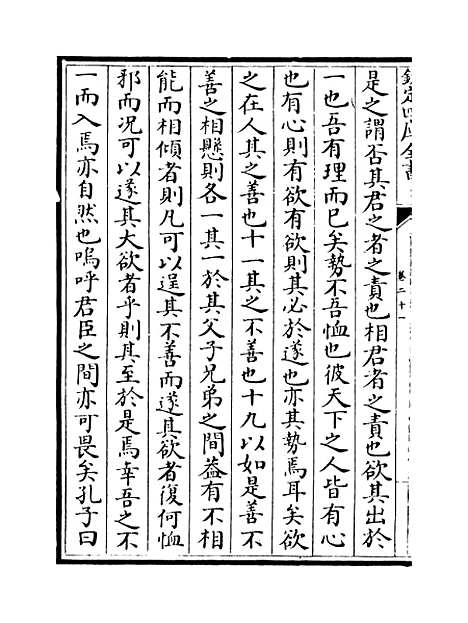 欽定四庫全書
卷二十一
是之謂否其君之者之責也相君者之責也欲其出於
一也吾有理而已矣勢不吾恤也彼天下之人皆有心
也有心則有欲有欲則其必於遂也亦其勢焉耳矣欲
之在人其之善也十一其之不善也十九以如是善不
善之相懸則各一其一於其父子兄弟之間葢有不相
能而相傾者則凡可以逞其不善而遂其欲者復何恤
邪而况可以遂其大欲者乎則其至於是焉幸吾之不
一而入焉亦自然也嗚呼君臣之間亦可畏矣孔子曰